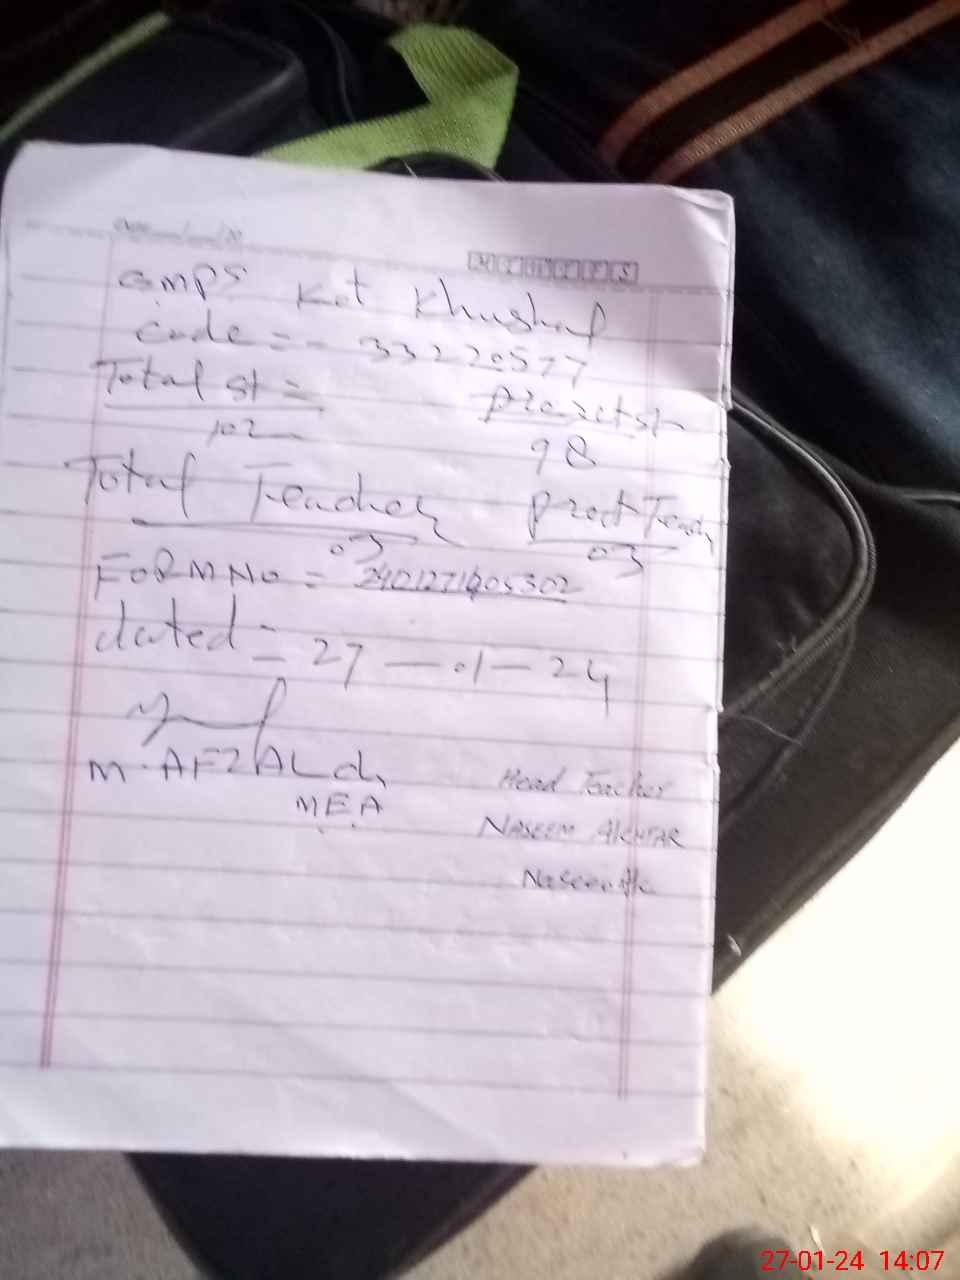 Date
M T W T F S
GMPS Kot Khushal
code = - 33220577
Total st = Prezct st
102 98
Total Teacher Prect Teach
03 03
FORM NO = 2401271405302
dated = 27 - 01 - 24
M. AFZAL ch
MEA
Head Teacher
NASEEM AKHTAR
27-01-24 14:07